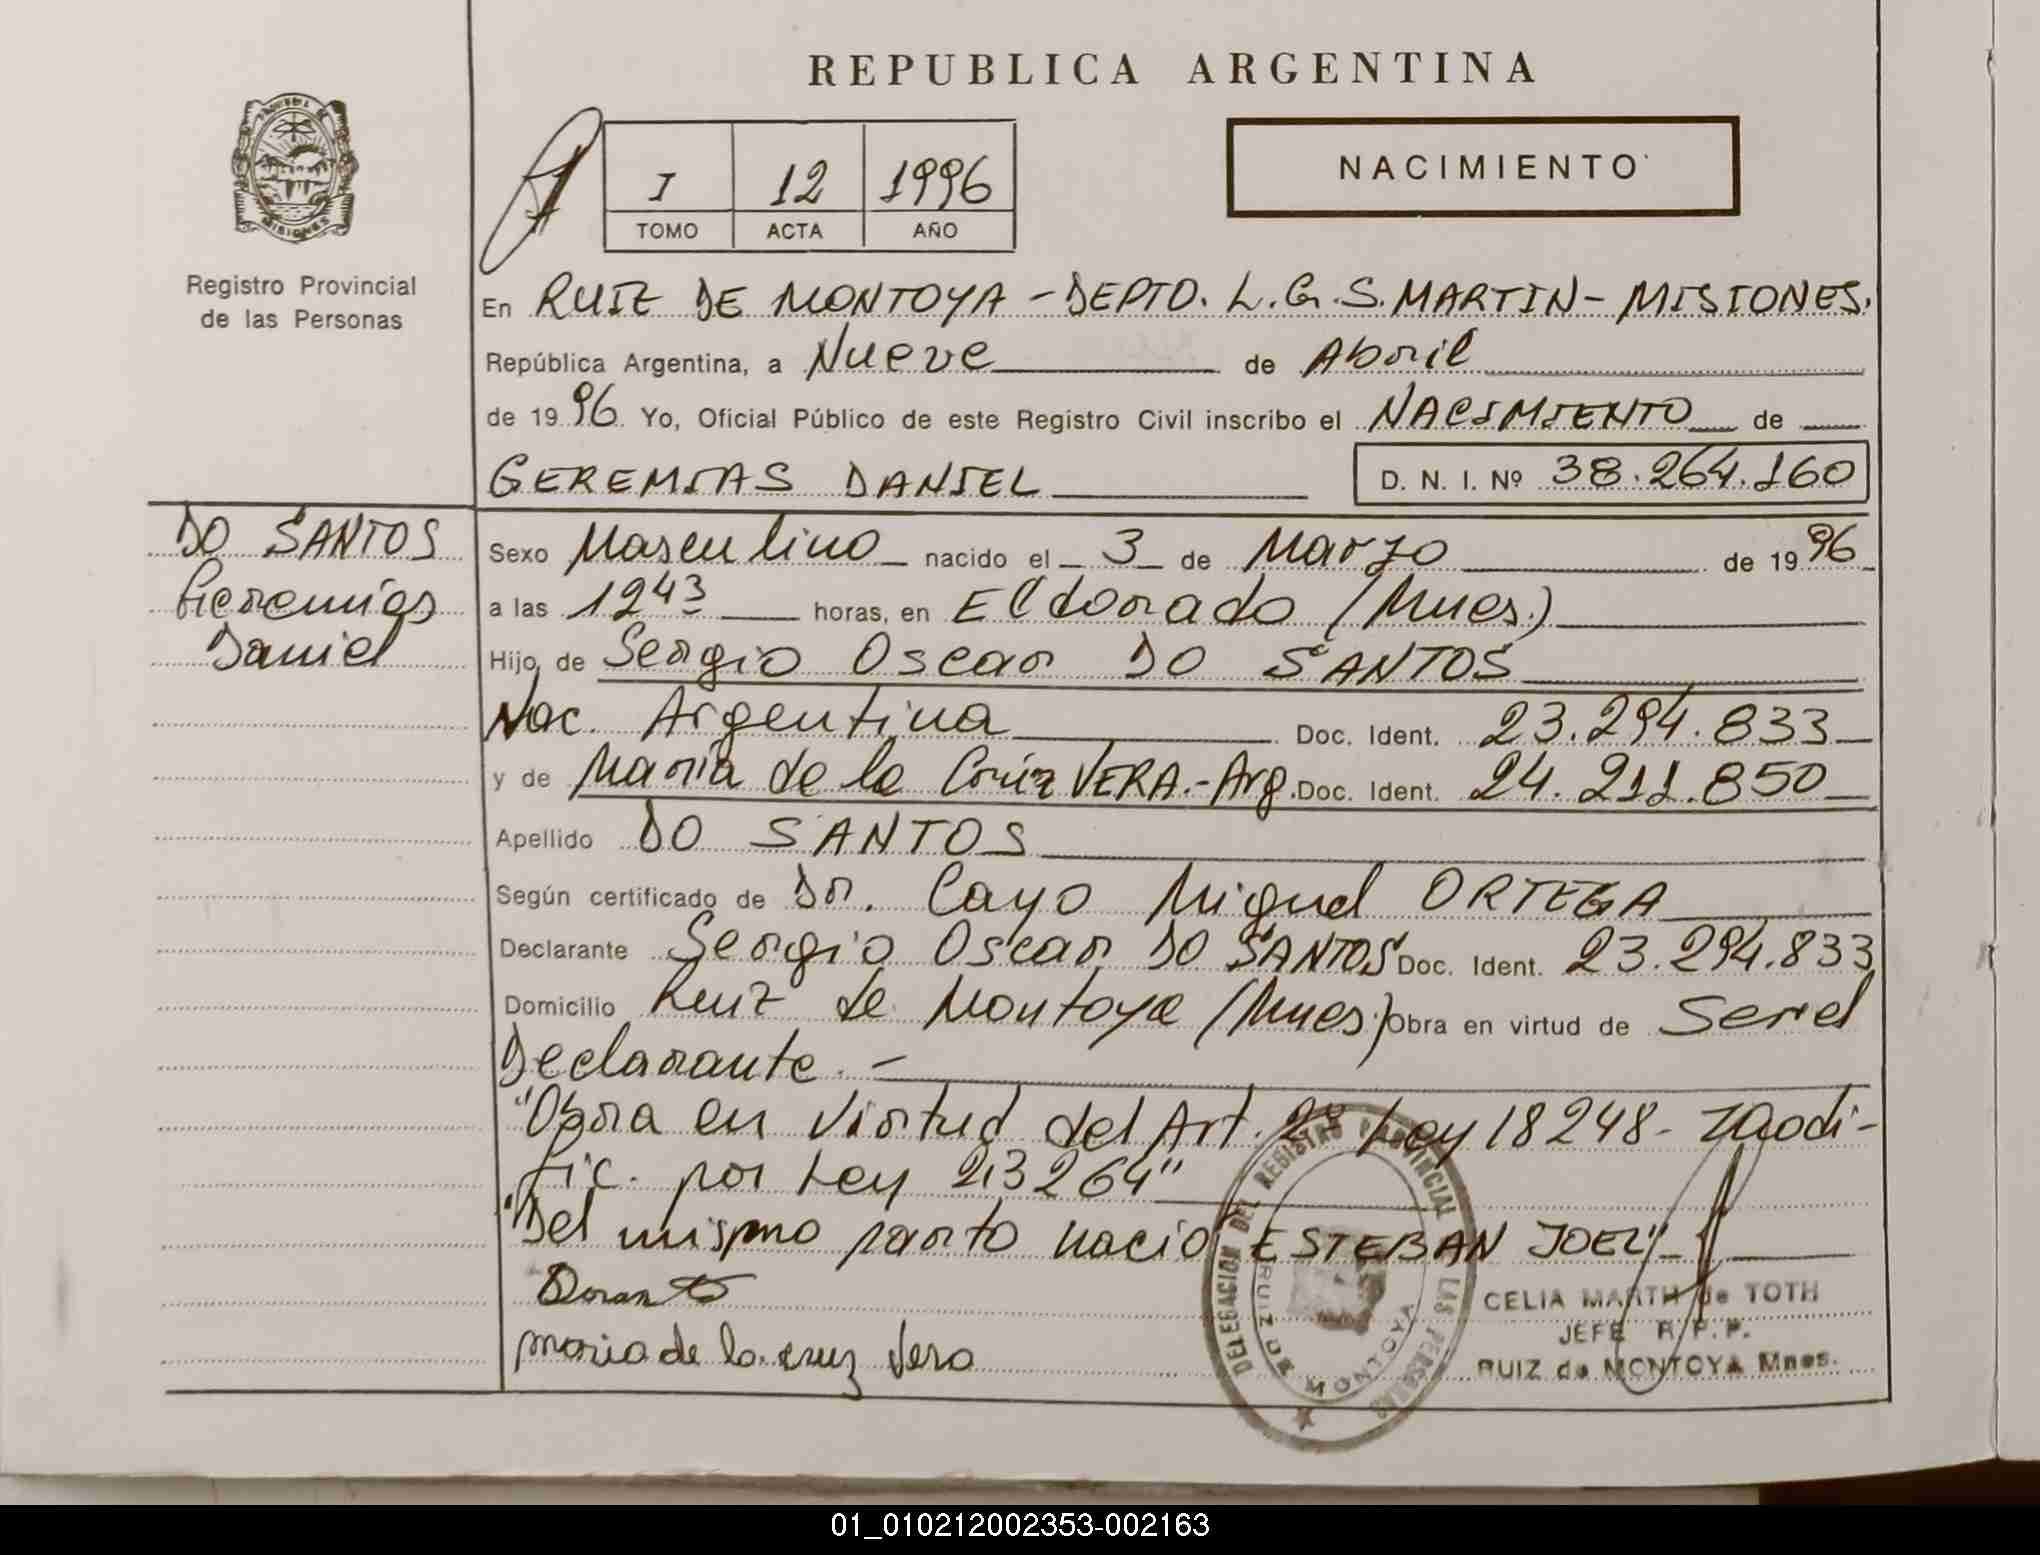 REPUBLICA ARGENTINA
MISIONES
Registro Provincial
de las Personas
I 12 1996
TOMO ACTA AÑO
NACIMIENTO
En RUIZ DE MONTOYA - DEPTO. L.G.S. MARTIN - MISIONES.
República Argentina, a Nueve de Abril
de 1996 Yo, Oficial Público de este Registro Civil inscribo el NACIMIENTO de
GEREMIAS DANIEL D. N. I. Nº 38.264.160
DO SANTOS
Geremias
Daniel
Sexo Masculino nacido el 3 de Marzo de 1996
a las 1243 horas, en Eldorado (Mnes.)
Hijo de Sergio Oscar DO SANTOS
Nac. Argentina Doc. Ident. 23.294.833
y de Maria de la Cruz VERA.- Arg. Doc. Ident. 24.211.850
Apellido DO SANTOS
Según certificado de Dr. Cayo Miguel ORTEGA
Declarante Sergio Oscar DO SANTOS Doc. Ident. 23.294.833
Domicilio Ruiz de Montoya (Mnes.) Obra en virtud de Ser el
Declarante.-
"Obra en virtud del Art. Ley 18248- Modi-
fic. por Ley 23264"
"Del mismo parto nació ESTEBAN JOEL"
maria de la cruz Vera
DELEGACION DEL REGISTRO PROVINCIAL LAS PERSONAS
RUIZ DE MONTOYA
CELIA MARTH de TOTH
JEFE R.P.P.
RUIZ de MONTOYA Mnes.
01_010212002353-002163